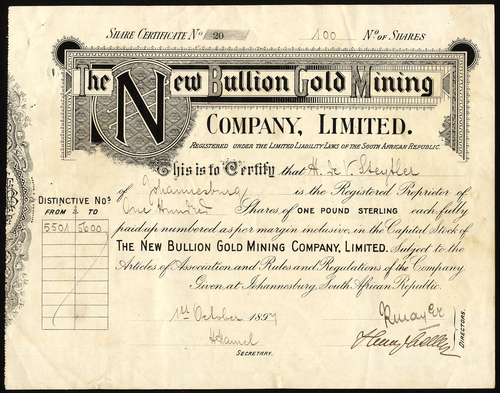 SHARE CERTIFICATE No 20 100 No OF SHARES
The New Bullion Gold Mining
COMPANY, LIMITED.
REGISTERED UNDER THE LIMITED LIABILITY LAWS OF THE SOUTH AFRICAN REPUBLIC.
This is to Certify that H. de V. Steytler
of Johannesburg is the Registered Proprietor of
One Hundred Shares of ONE POUND STERLING each, fully
paid up numbered as per margin inclusive, in the Capital Stock of
THE NEW BULLION GOLD MINING COMPANY, LIMITED. Subject to the
Articles of Association, and Rules and Regulations of the Company.
Given at Johannesburg, South African Republic.
DISTINCTIVE Nos
FROM & TO
5501 5600
1st October 1897
SECRETARY.
DIRECTORS.